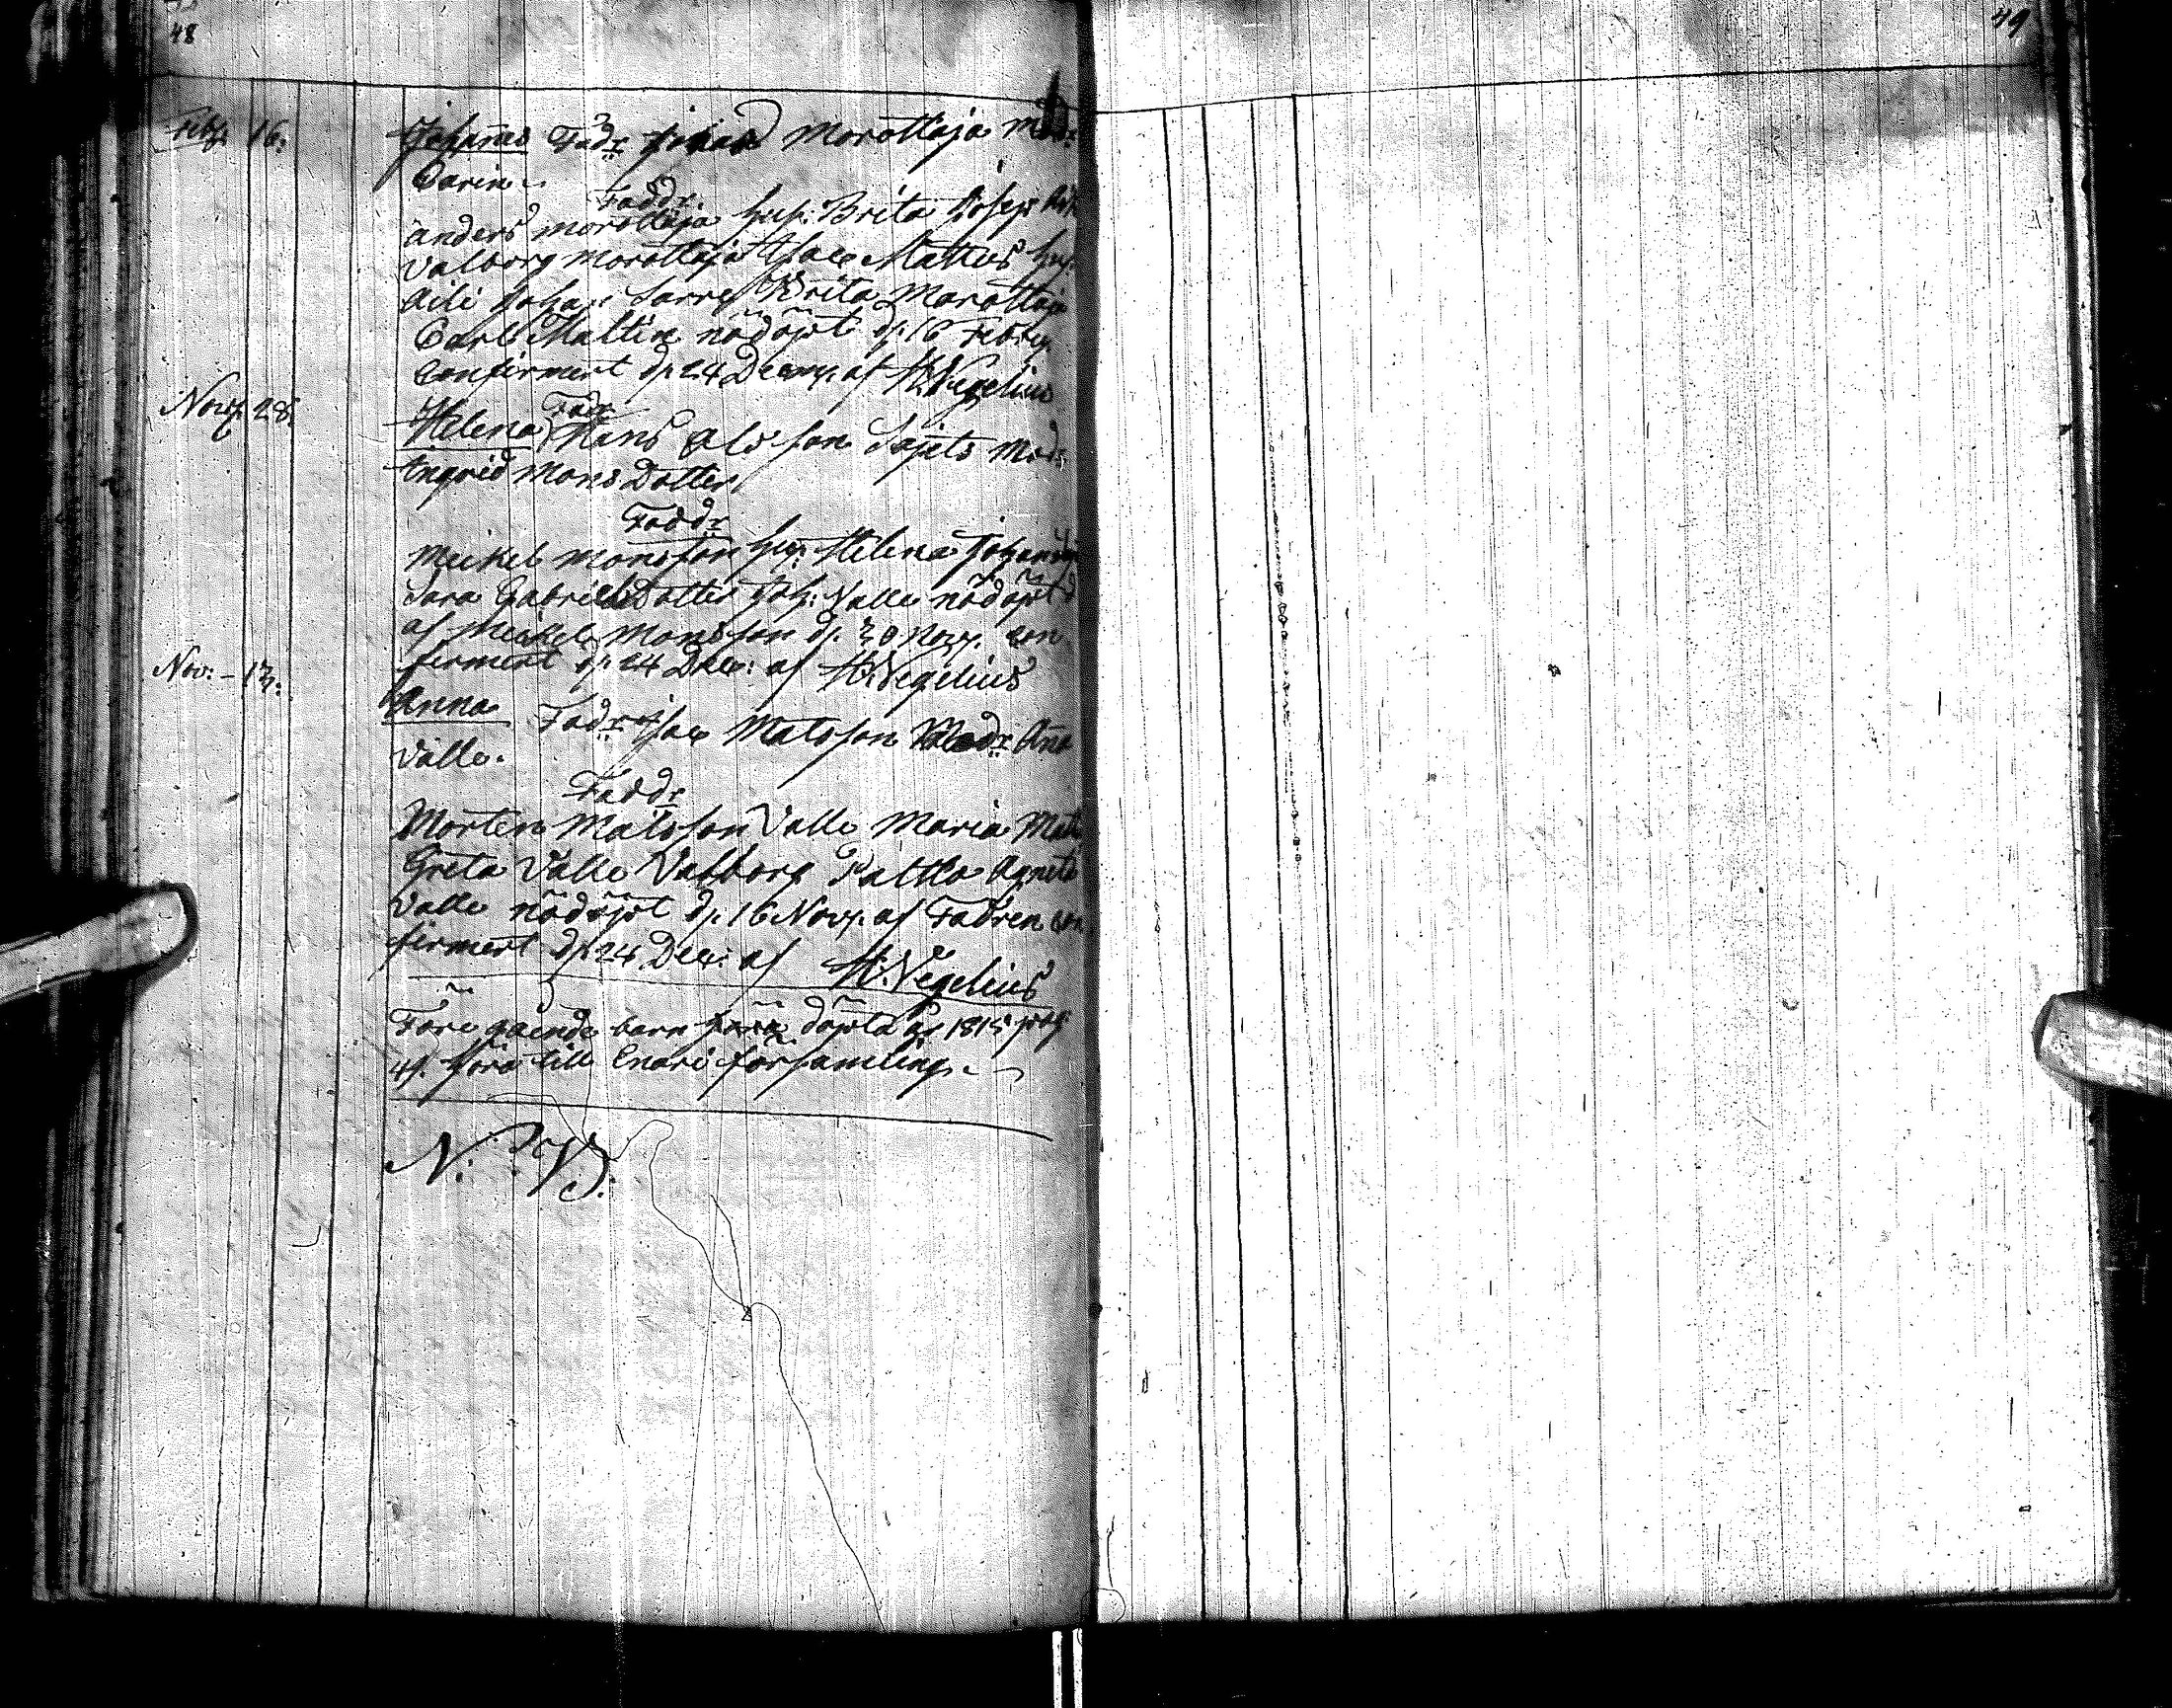 48
49
Febr. 16. Johan̄es Fadr Morottaja Modr:
Carin
Faddr.
Anders Morottaja hus: Brita Joseph
Valborg Morottaja Isac Mattus hus:
Aili Joha: Sarre Brita Morottaja
Carl Mattus nöddöpt d. 16 Febry.
Confirmert d. 24 Decmr. af H: Wegelius
Novr. 28. Helena Fadr Hans Olsson Sajets Modr.
Ingrid Mons Dotter
Faddr
Meikel Monsson hus: Helena Johan
Sara Gabriels Dotter Joh: Valle nöddöpt
af Meikel Monsson d. 30 Novr. con
firmert d. 24 Dec: af H: Wegelius
Nov: - 13. Anna Fadr Isac Matsson Modr An̄a
Valle.
Faddr
Morten Matsson Valle Maria Mats
Greta Valle Valborg Paltto Agneta
Valle nöddöpt d. 16 Novr. af Fadren con
firmert d. 24 Dec: af H: Wegelius
Före gaende barn döpta år 1815 pag:
47. höra till Enari församling.
N: B.